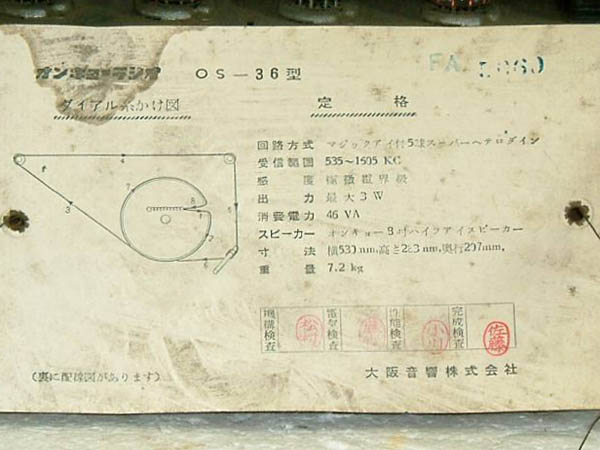 オンキョーラジオ OS—36型
FA.
ダイアル糸かけ図
定格
回路方式 マジックアイ付5球スーパーヘテロダイン
受信範囲 535〜1605 KC
感度 極微電界級
出力 最大3W
消費電力 46 VA
スピーカー オンキョー8吋ハイファイスピーカー
寸法 横530mm,高さ283mm,奥行207mm,
重量 7.2kg
機構検査
電気検査
性能検査 小川
完成検査 佐藤
(裏に配線図があります)
大阪音響株式会社